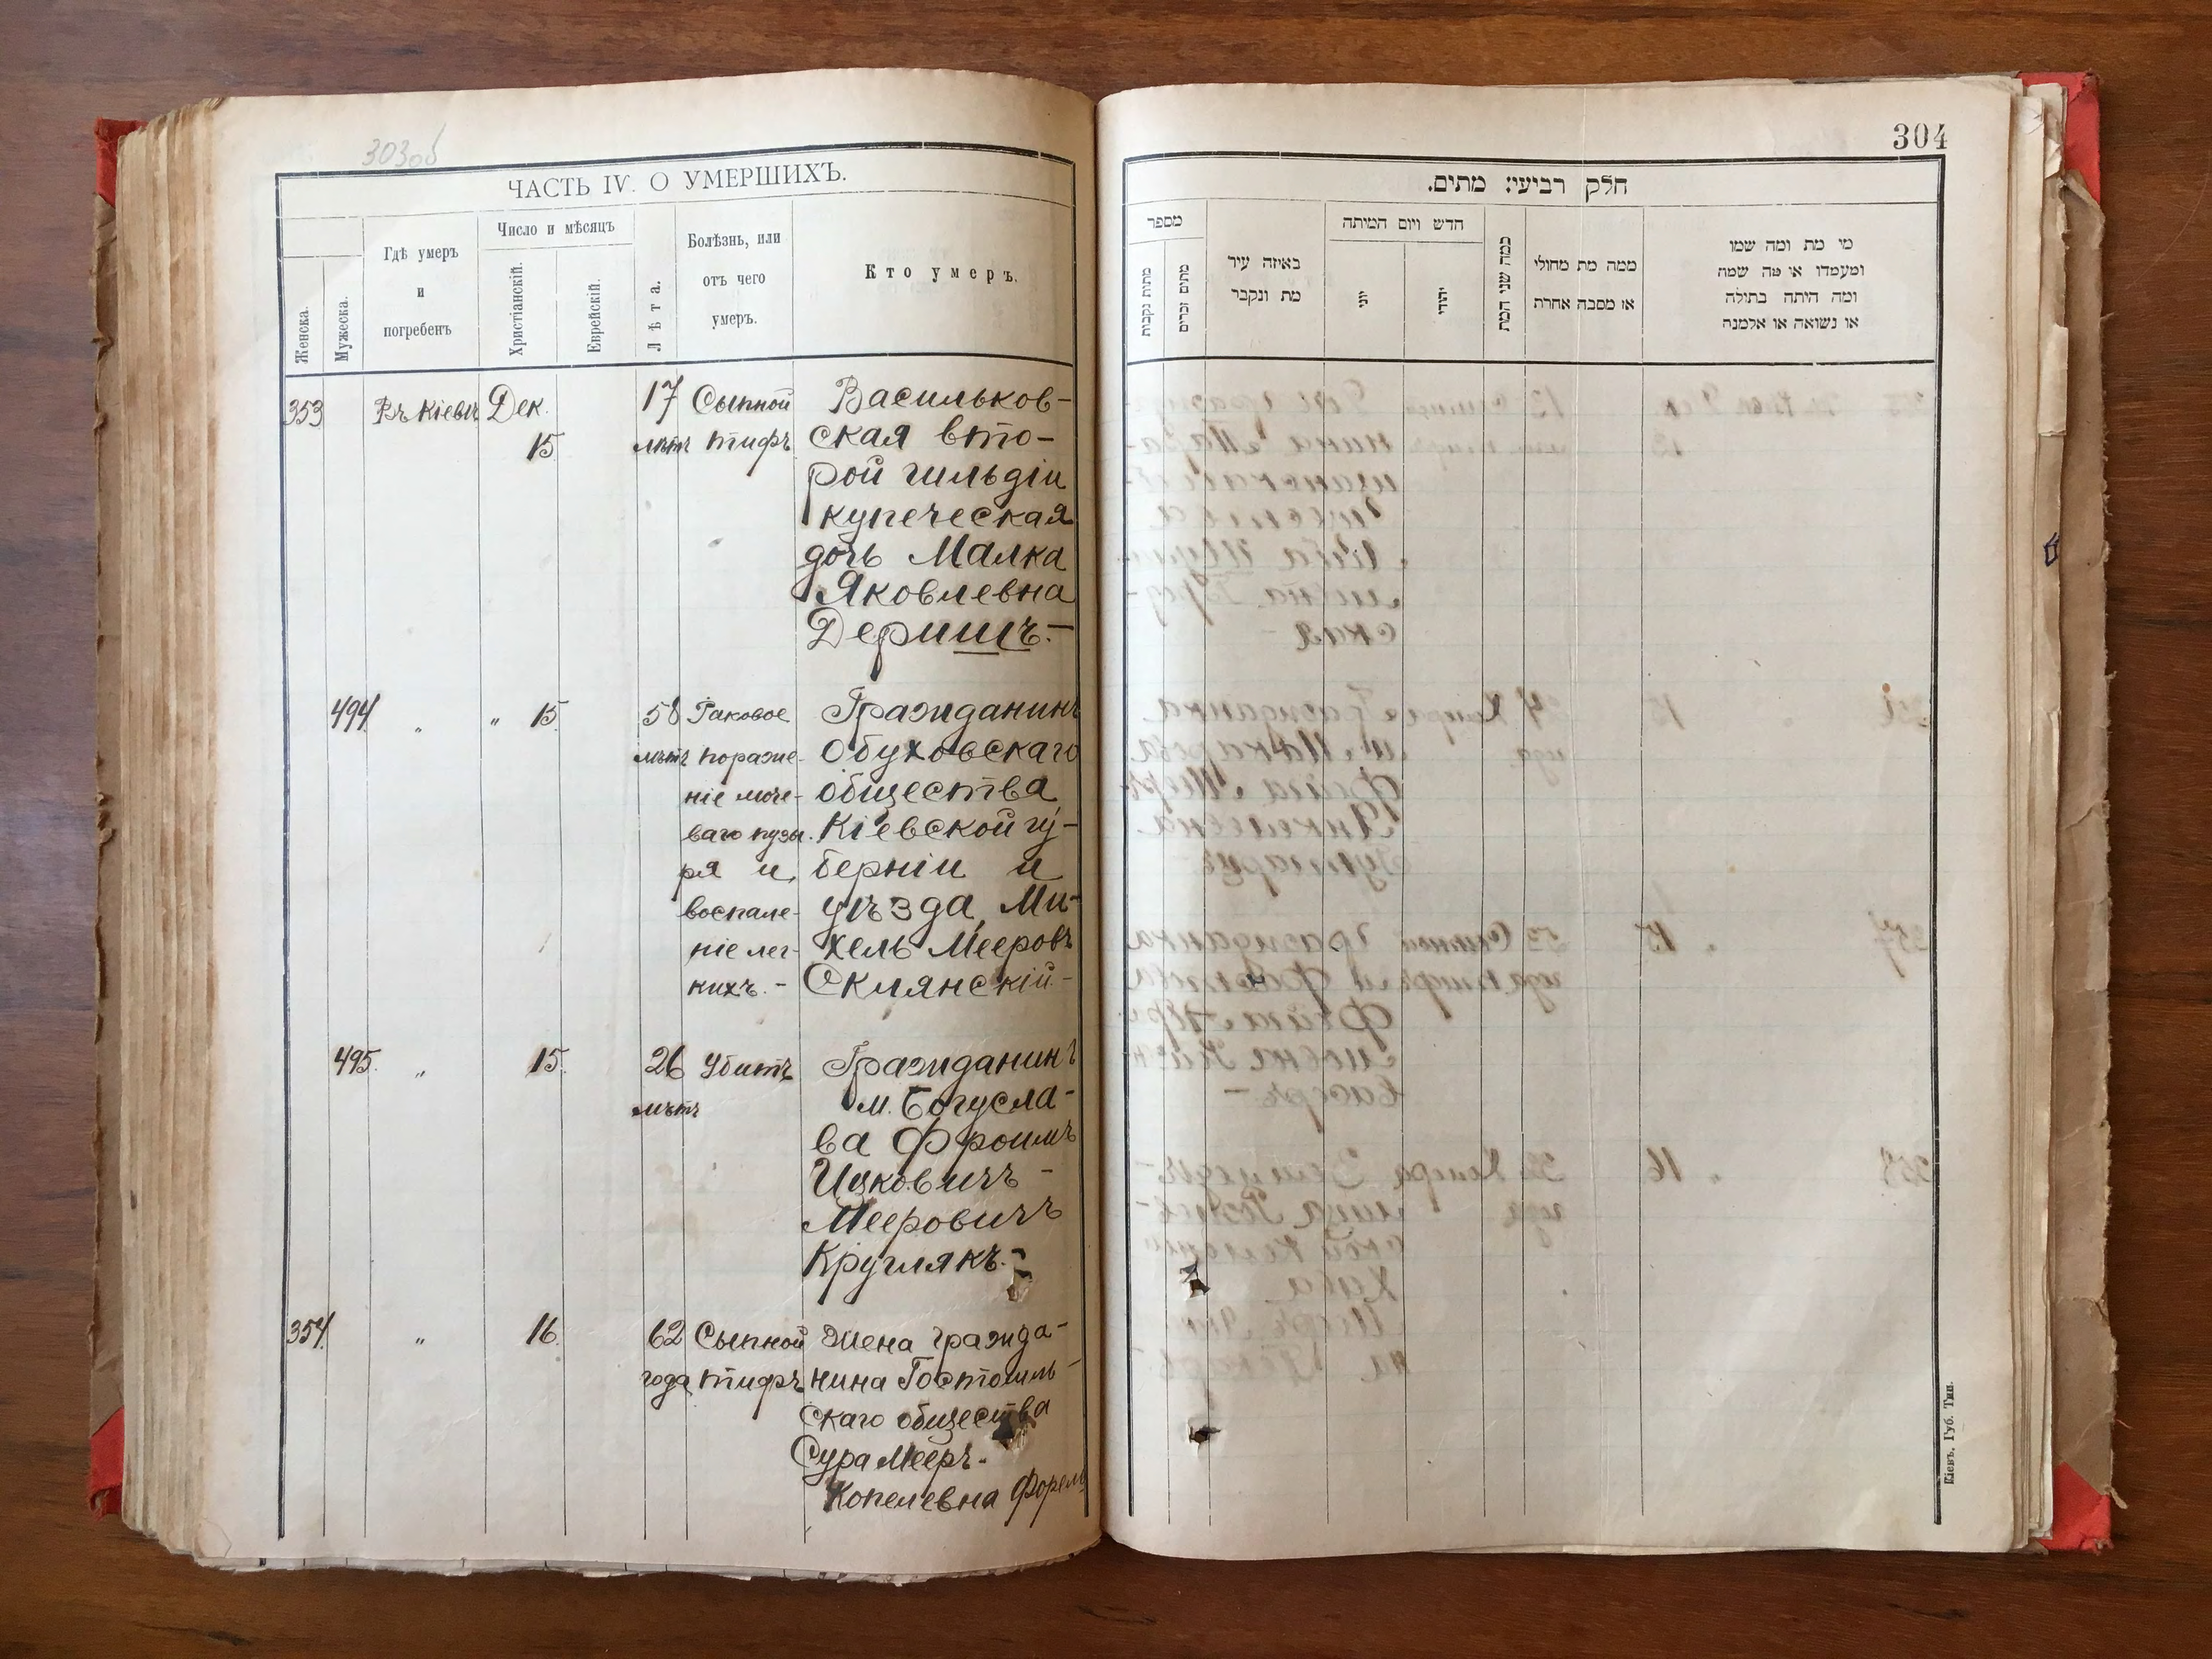 303об
ЧАСТЬ IV. О УМЕРШИХЪ.
Женска.
Мужеска.
Гдѣ умеръ
и
погребенъ
Число и мѣсяцъ
Христіанскій.
Еврейскій.
Лѣта.
Болѣзнь, или
отъ чего
умеръ.
Кто умеръ.
353 Въ Кіевѣ Дек. 17 Сыпной Васильков-
15 лѣтъ тифъ ская вто-
рой гильдіи
купеческая
дочь Малка
Яковлевна
Деришъ.-
494 " " 15 58 Раковое Гражданинъ
лѣтъ пораже- Обуховскаго
ніе моче- общества
ваго пузы- Кіевской гу-
ря и берніи и
воспале- уѣзда, Ми-
ніе лег- хель Мееровъ
кихъ.- Склянскій.-
495. " 15. 26 Убитъ Гражданинъ
лѣтъ м. Богусла-
ва Фроимъ
Ицковичъ -
Мееровичъ
Круглякъ.-
354. " 16. 62 Сыпной Жена гражда-
года тифъ нина Гостомль-
скаго общества
Сура Мееръ-
Копелевна Форель
304
חלק רביעי: מתים.
מספר
מתות נקבות
מתים זכרים
באיזה עיר
מת ונקבר
חדש ויום המיתה
יוני
יהודי
כמה שני המת
ממה מת מחולי
או מסבה אחרת
מי מת ומה שמו
ומעמדו או מה שמה
ומה היתה בתולה
או נשואה או אלמנה
Кіевъ, Губ. Тип.